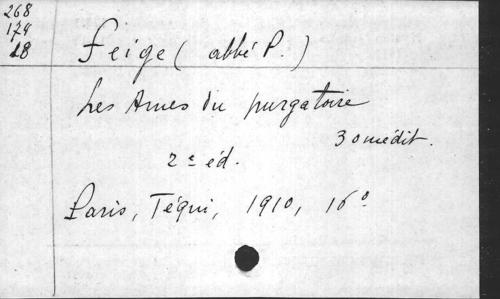 268
174
18
Feige (abbé P.)
Les Ames du purgatoire
30 médit.
2e éd.
Paris, Téqui, 1910, 16°